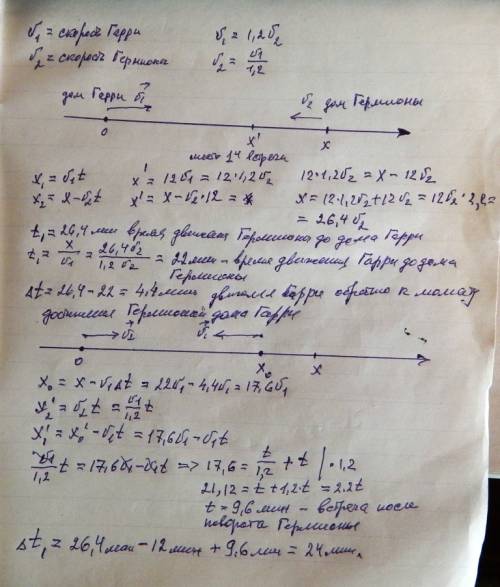 v₁ = скорость Гарри v₁ = 1,2v₂
v₂ = скорость Гермиона v₂ = v₁/1,2
дом Гарри v₁ v₂ дом Гермионы
0 x' x
место 1й встречи
x₁ = v₁t x' = 12v₁ = 12·1,2v₂ 12·1,2v₂ = x - 12v₂
x₂ = x - v₂t x' = x - v₂·12 = x = 12·1,2v₂ + 12v₂ = 12v₂·2,2 =
= 26,4v₂
t₁ = 26,4 мин время движения Гермиона до дома Гарри
t₁ = x/v₁ = 26,4v₂/1,2v₂ = 22мин - время движения Гарри до дома
Гермионы
Δt = 26,4 - 22 = 4,4мин двигался Гарри обратно к моменту
достижения Гермионой дома Гарри
v₂ v₁
0 x₀ x
x₀ = x - v₁Δt = 22v₁ - 4,4v₁ = 17,6v₁
x₂' = v₂t = v₁/1,2 t
x₁' = x₀' - v₁t = 17,6v₁ - v₁t
v₁/1,2 t = 17,6v₁ - v₁t => 17,6 = t/1,2 + t | ·1,2
21,12 = t + 1,2·t = 2.2t
t = 9,6 мин - встреча после
поворота Гермионы
Δt₁ = 26,4 мин - 12 мин + 9,6 мин = 24 мин.